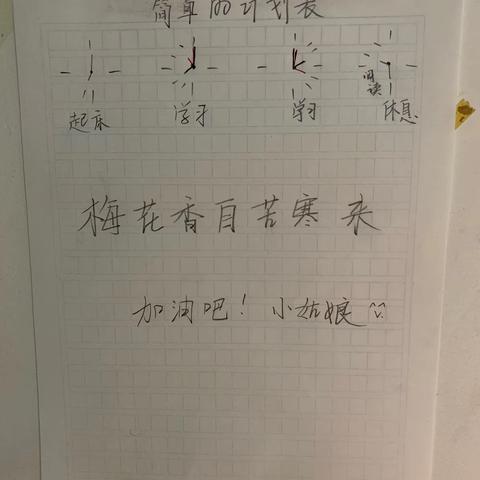 简单的计划表
起床 学习 学习 阅读 休息
梅花香自苦寒来
加油吧！小姑娘